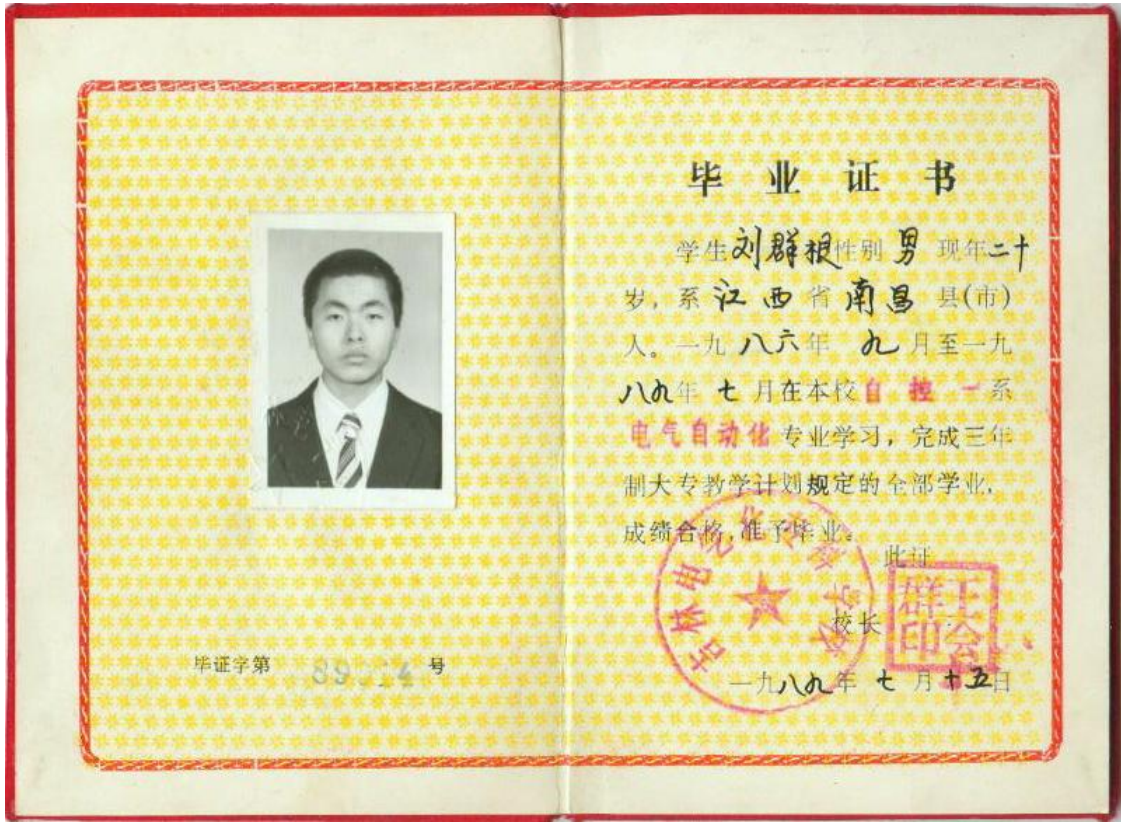 毕业证书
学生刘群根性别 男 现年二十
岁，系 江西 省 南昌 县(市)
人。一九八六年 九月至一九
八九年 七 月在本校自控一系
电气自动化 专业学习，完成三年
制大专教学计划规定的全部学业，
成绩合格，准予毕业。
此证
吉林电气化专科学校
校长
王会群印
毕证字第 号
一九八九年 七 月十五日